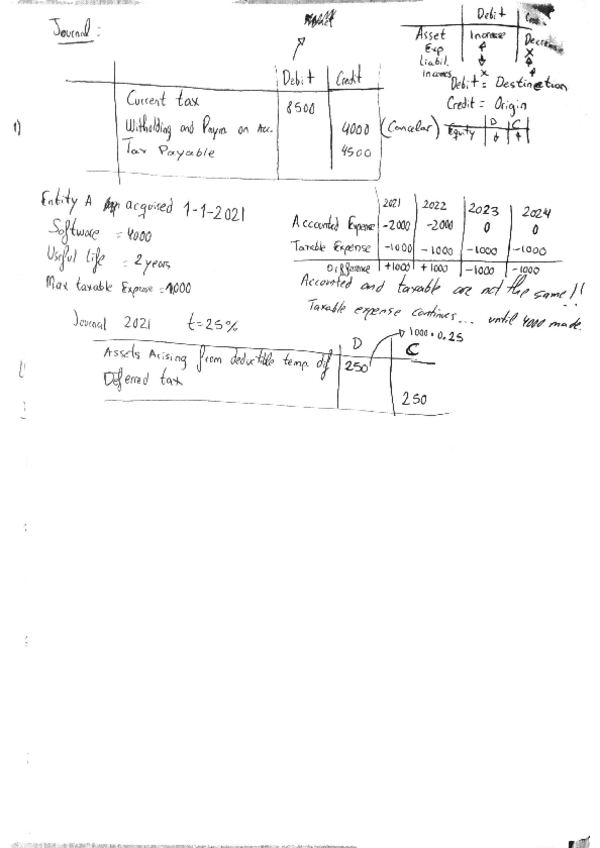 Journal:
Debit
Asset Increase Decrease
Exp
Liabil.
Incomes x
Debit = Destination
Credit = Origin
Debit Credit
Current tax 8500
1) Withholding and Paym on Acc. 4000 (Cancelar) Equity D C
Tax Payable 4500
Entity A acquired 1-1-2021
Software = 4000
Useful life = 2 years
Max taxable Expense = 1000
2021 2022 2023 2024
Accounted Expense -2000 -2000 0 0
Taxable Expense -1000 -1000 -1000 -1000
Difference +1000 +1000 -1000 -1000
Accounted and taxable are not the same!!
Taxable expense continues... until 4000 made.
Journal 2021 t=25%
1000·0.25
D C
Assets Arising from deductible temp. dif 250
Deferred tax 250